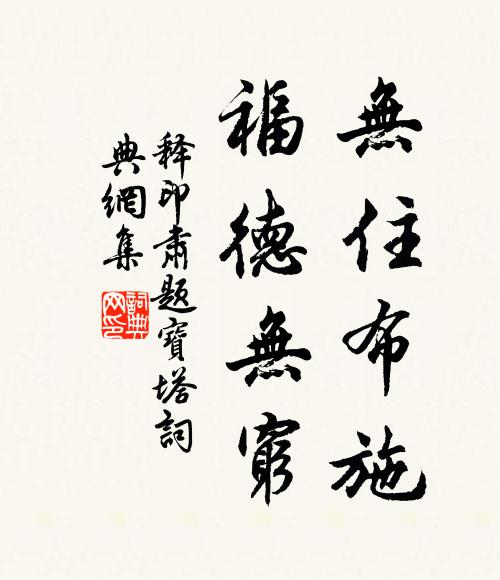 無住布施
福德無窮
釋印肅題寶塔詞
典網集
詞典
网印